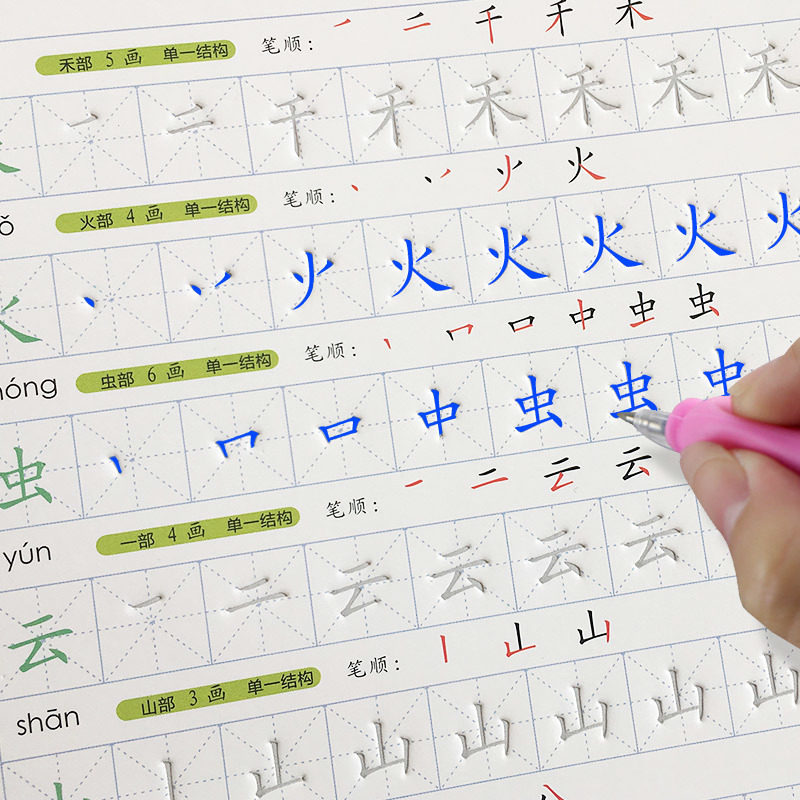 禾部 5 画 单一结构 笔顺： ㇒ 二 千 禾 禾
一 二 千 禾 禾 禾 禾 禾
ǒ 火部 4 画 单一结构 笔顺： 丶 丷 火 火
火 丶 丷 火 火 火 火 火 火
hóng 虫部 6 画 单一结构 笔顺： 丨 冖 口 中 虫 虫
虫 丨 冖 口 中 虫 虫 中
yún 一部 4 画 单一结构 笔顺： 一 二 云 云
云 一 二 云 云 云 云
shān 山部 3 画 单一结构 笔顺： 丨 山 山
山 丨 山 山 山 山 山 山